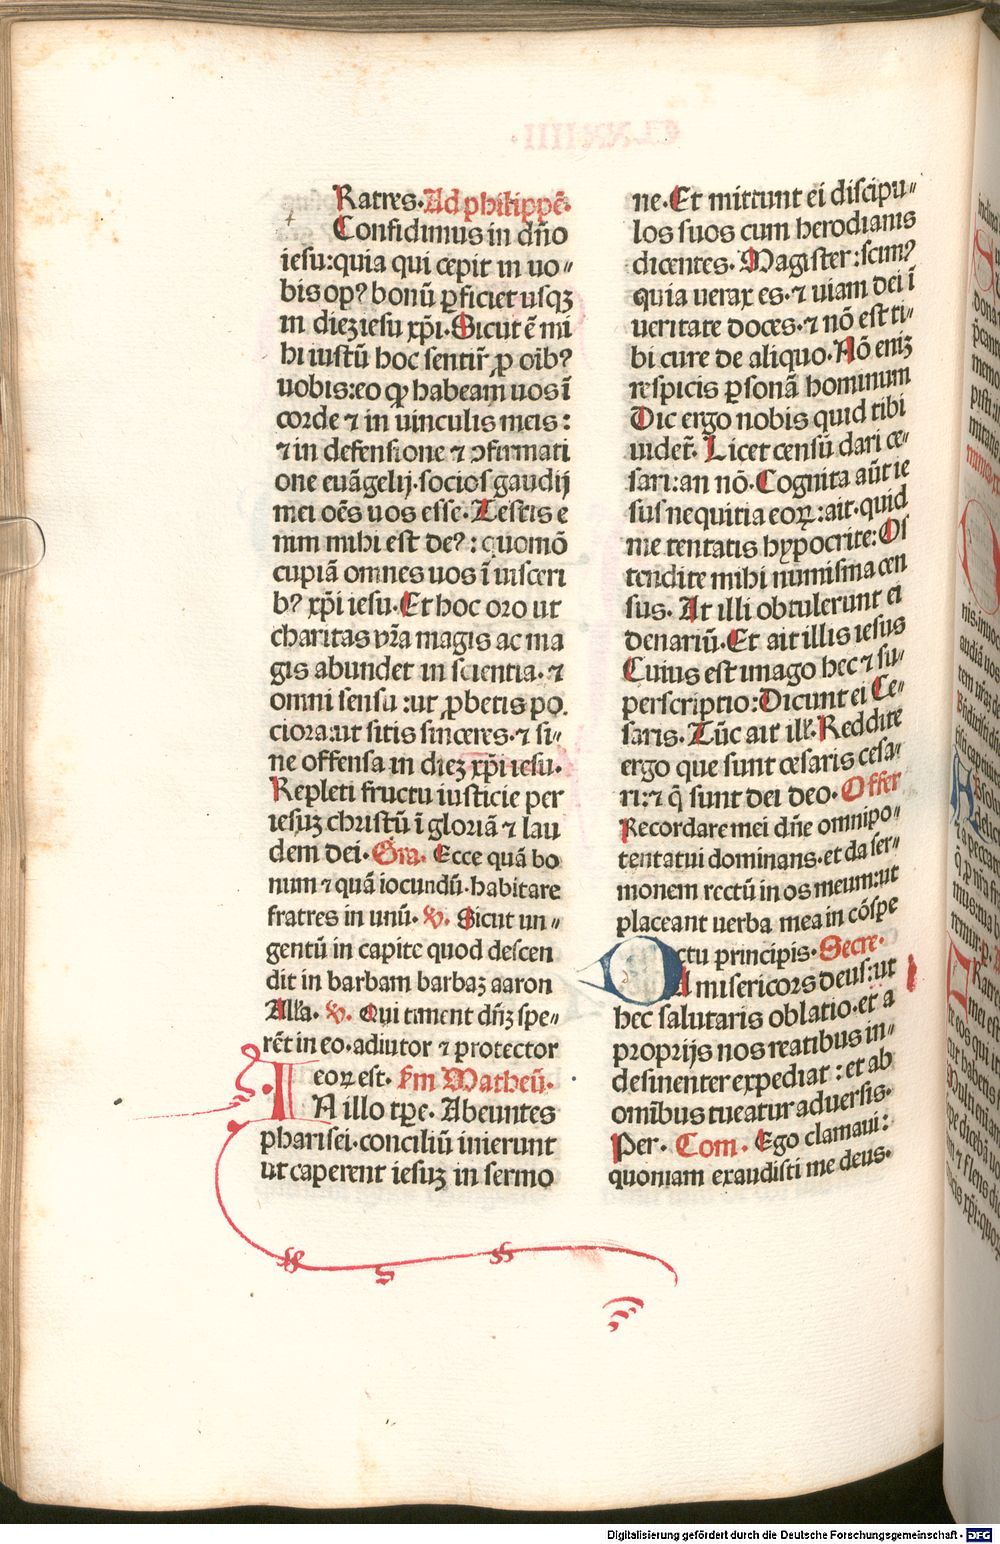 Ratres. Ad philippē.
Confidimus in dño
iesu: quia qui cepit in uo〃
bis op? bonū ꝑficiet usqꝫ
in dieꝫ iesu xp̄i. Sicut ē mi
hi iustū hoc sentir̄ ꝓ oīb?
uobis: eo ꝙ habeam uos ī
corde ⁊ in uinculis meis:
⁊ in defensione ⁊ ↄfirmati
one euāgelij. socios gaudij
mei oēs uos esse. Testis e
nim mihi est de?: quomō
cupiā omnes uos ī uisceri
b? xp̄i iesu. Et hoc oro ut
charitas vr̄a magis ac ma
gis abundet in scientia. ⁊
omni sensu: ut ꝓbetis po.
ciora: ut sitis sinceres. ⁊ si〃
ne offensa in dieꝫ xp̄i iesu.
Repleti fructu iusticie per
iesuꝫ christū ī gloriā ⁊ lau
dem dei. Gra. Ecce quā bo
num ⁊ quā iocundū. habitare
fratres in unū. ꝟ. Sicut un〃
gentū in capite quod descen
dit in barbam barbaꝫ aaron
Alľa. ꝟ. Qui timent dn̄ꝫ spe〃
rēt in eo. adiutor ⁊ protector
eoꝝ est. Fm Matheū.
IN illo tꝑe. Abeuntes
pharisei. conciliū inierunt
ut caperent iesuꝫ in sermo
ne. Et mittunt ei discipu〃
los suos cum herodianis
dicentes. Magister: scim?
quia uerax es. ⁊ uiam dei ī
ueritate doces. ⁊ nō est ti〃
bi cure de aliquo. Nō eniꝫ
respicis ꝑsonā hominum
Dic ergo nobis quid tibi
uidet̄. Licet censū dari ce〃
sari: an nō. Cognita aūt ie
sus nequitia eoꝝ: ait. quid
me tentatis hypocrite: Os
tendite mihi numisma cen
sus. At illi obtulerunt ei
denariū. Et ait illis iesus
Cuius est imago hec ⁊ su〃
perscriptio: Dicunt ei Ce〃
saris. Tūc ait ill'. Reddite
ergo que sunt cesaris cesa〃
ri: ⁊ q̄ sunt dei deo. Offer
Recordare mei dn̄e omnipo〃
tentatui dominans. et da ser〃
monem rectū in os meum: ut
placeant uerba mea in cōspe
ctu principis. Secre.
DA misericors deus: ut
hec salutaris oblatio. et a
proprijs nos reatibus in〃
desinenter expediat: et ab
omībus tueatur aduersis.
Per. Com. Ego clamaui:
quoniam exaudisti me deus.
Digitalisierung gefördert durch die Deutsche Forschungsgemeinschaft - DFG